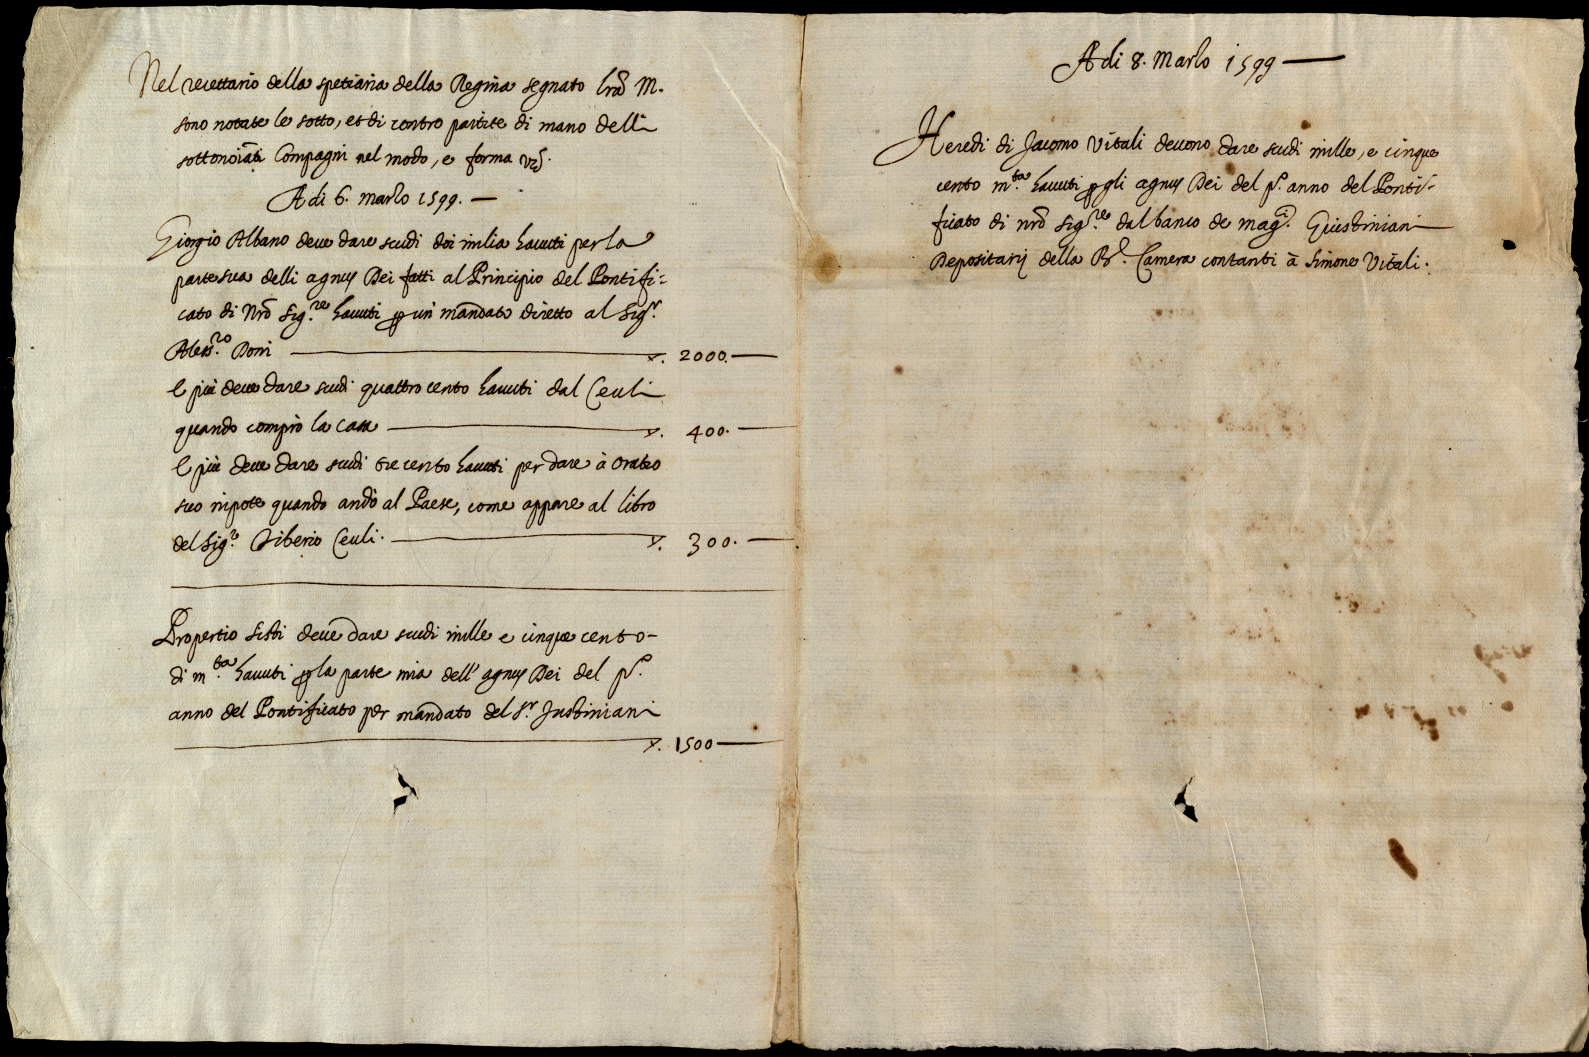 Nel recettario della spetiaria della Regina segnato lrã M.
sono notate le sotto, et di contro partite di mano delli
sottonoiãti Compagni nel modo, e forma vz.
A di 6. marzo 1599. —
Giorgio Albano deve dare scudi doi milia havuti per la
parte sua delli agnus Dei fatti al Principio del Pontifi:
cato di Nrõ Sig.re havuti p un mandato diretto al Sigr.
Aless.ro Doni — ▽. 2000. —
E più deve dare scudi quattro cento havuti dal Ceuli
quando comprò la casa — ▽. 400. —
E più deve dare scudi tre cento havuti per dare à Oratio
suo nipote quando andò al Paese, come appare al libro
del Sig.r Tiberio Ceuli. — ▽. 300. —
Propertio Sisti deve dare scudi mille e cinque cento –
di m.ta havuti p la parte mia dell' agnus Dei del p.o
anno del Pontificato per mandato del S.r Justiniani
— ▽. 1500 —
A di 8. Marzo 1599 —
Heredi di Jacomo Vitali devono dare scudi mille, e cinque
cento m.ta havuti p gli agnus Dei del p.o anno del Ponti-
ficato di nrõ sig.re dal banco de mag.i Giustiniani
Depositarij della R.a Camera contanti à Simone Vitali.